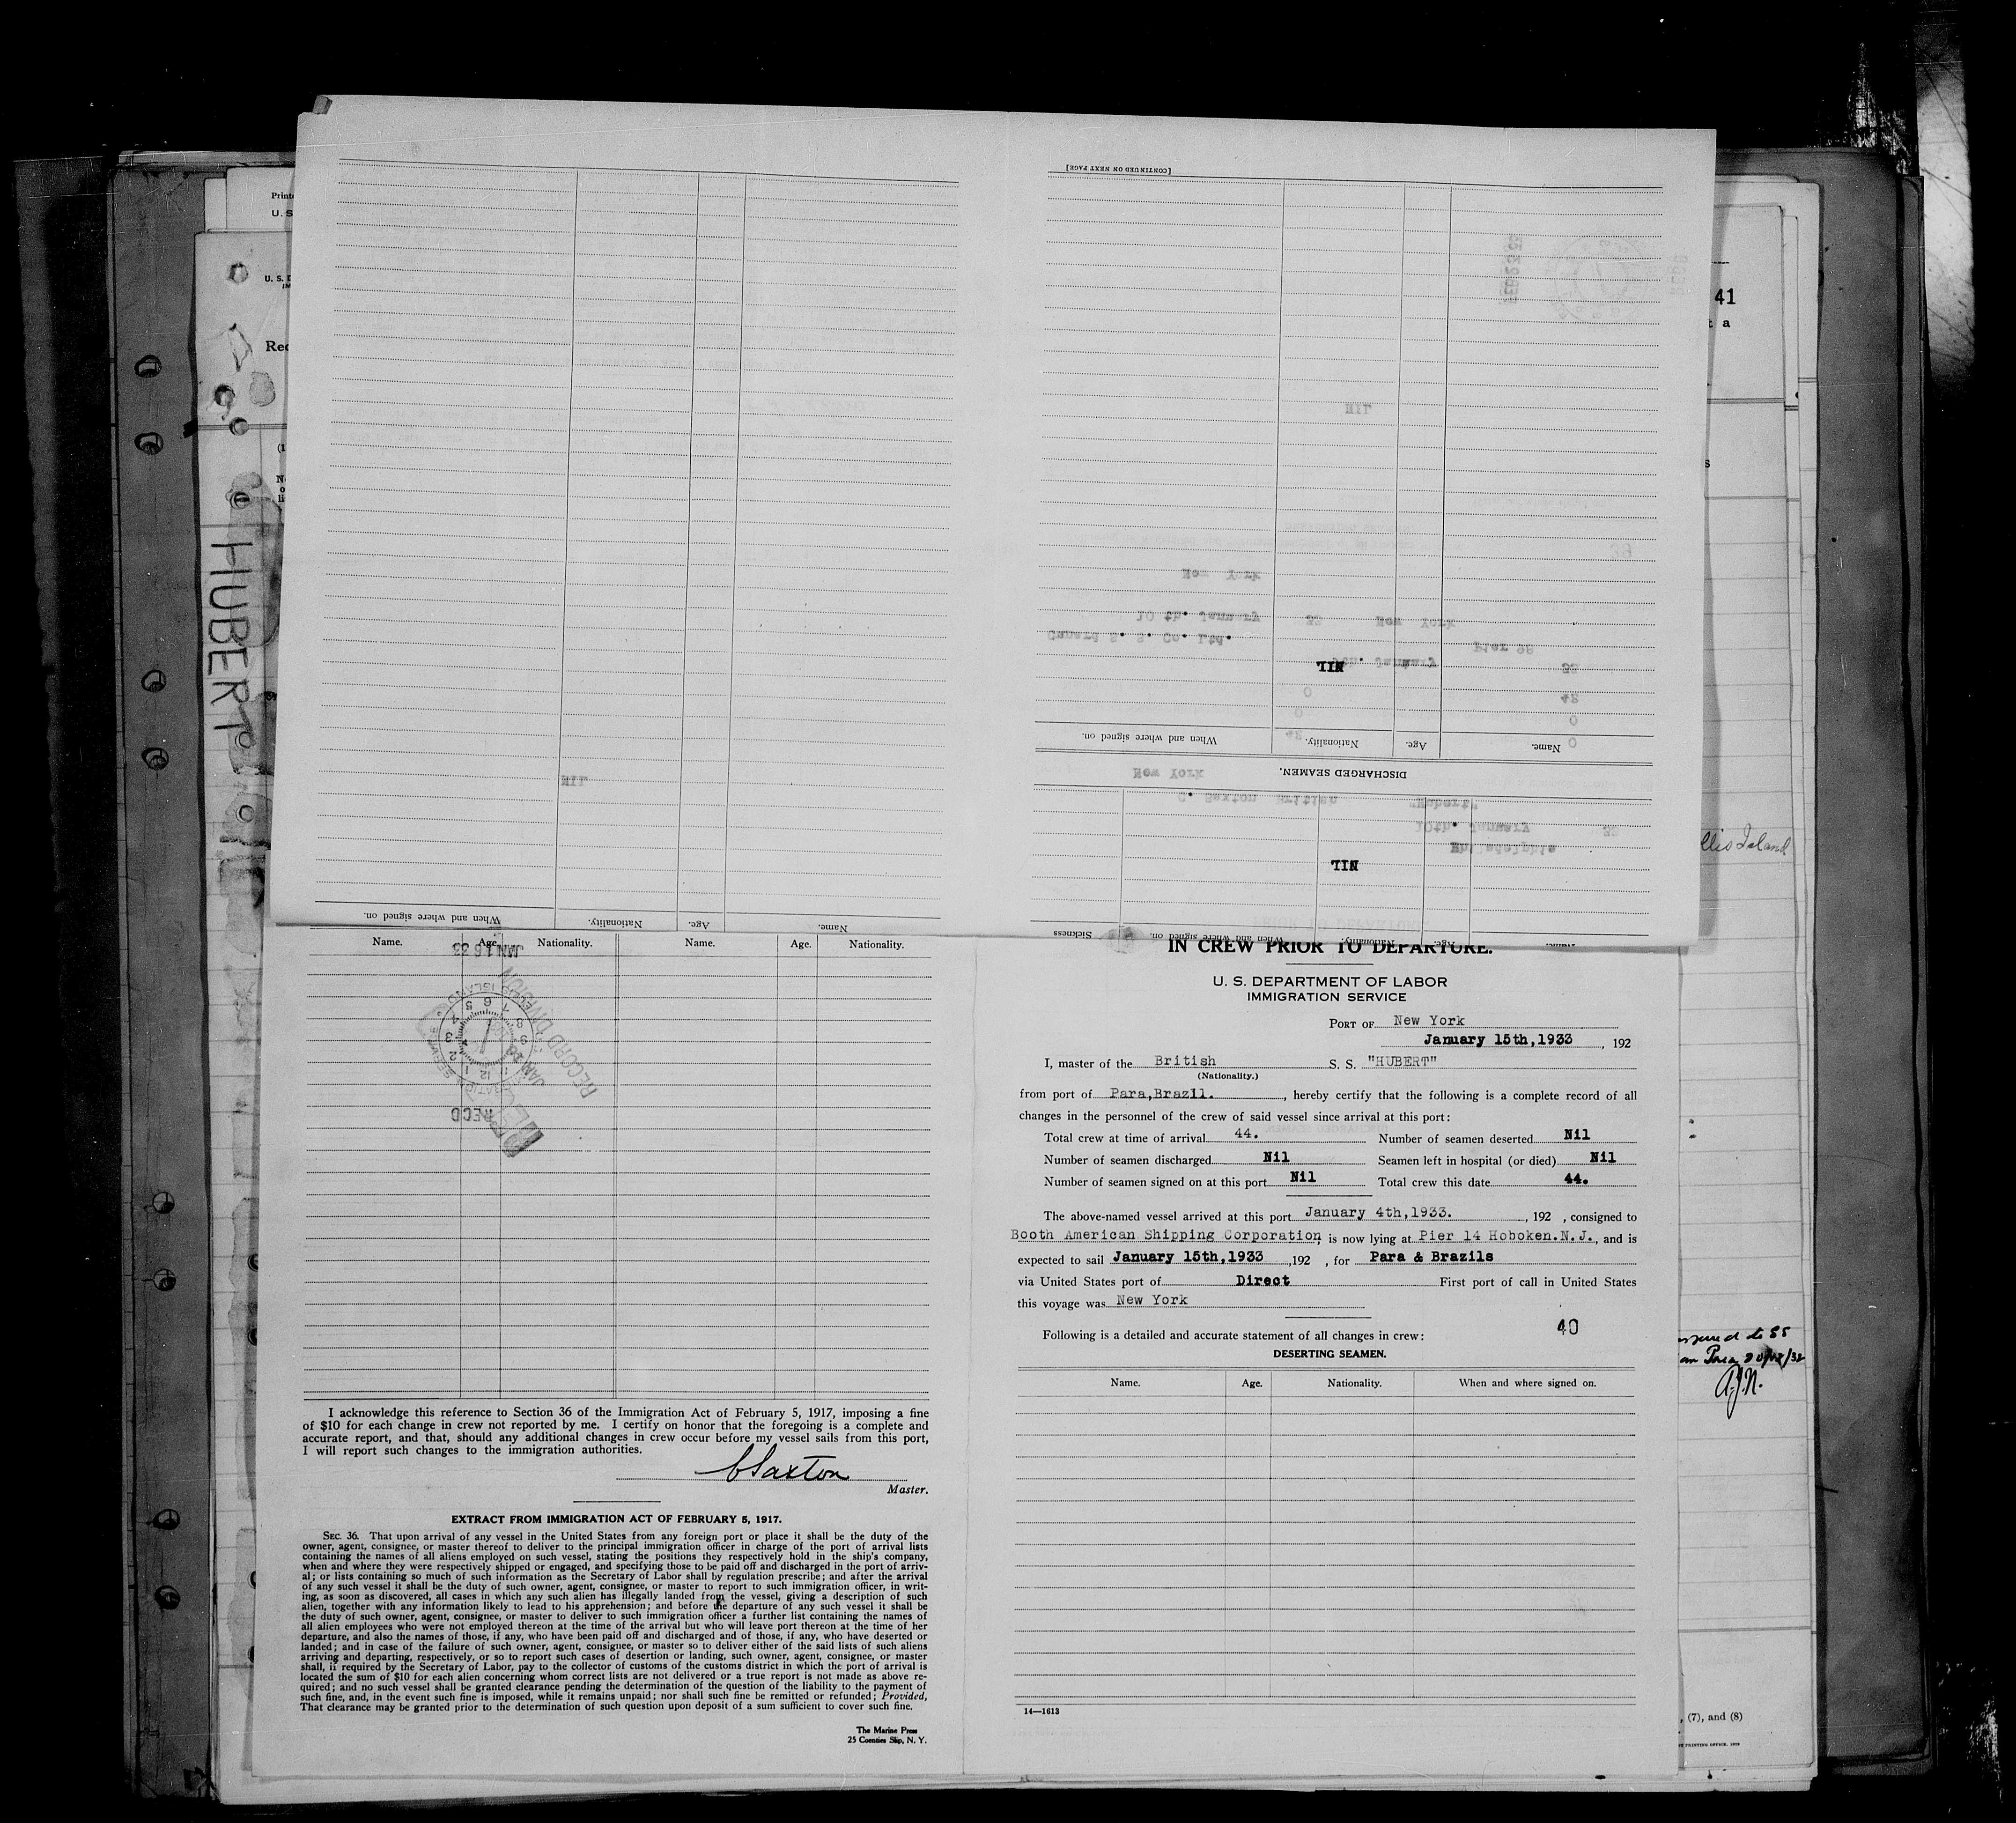 [CONTINUED ON NEXT PAGE]
NIL
When and where signed on.
Nationality.
Age.
Name.
DISCHARGED SEAMEN.
NIL
When and where signed on.
Nationality.
Age.
Name.
Sickness
When and where signed on.
Nationality.
Age.
Name.
HUBERT
41
t a
llis Island
A.J.N.
, (7), and (8)
Name. Age. Nationality. Name. Age. Nationality.
JAN 16 33
RECORD DIVISION
RECD
I acknowledge this reference to Section 36 of the Immigration Act of February 5, 1917, imposing a fine
of $10 for each change in crew not reported by me. I certify on honor that the foregoing is a complete and
accurate report, and that, should any additional changes in crew occur before my vessel sails from this port,
I will report such changes to the immigration authorities.
C Saxton
Master.
EXTRACT FROM IMMIGRATION ACT OF FEBRUARY 5, 1917.
SEC. 36. That upon arrival of any vessel in the United States from any foreign port or place it shall be the duty of the
owner, agent, consignee, or master thereof to deliver to the principal immigration officer in charge of the port of arrival lists
containing the names of all aliens employed on such vessel, stating the positions they respectively hold in the ship's company,
when and where they were respectively shipped or engaged, and specifying those to be paid off and discharged in the port of arriv-
al; or lists containing so much of such information as the Secretary of Labor shall by regulation prescribe; and after the arrival
of any such vessel it shall be the duty of such owner, agent, consignee, or master to report to such immigration officer, in writ-
ing, as soon as discovered, all cases in which any such alien has illegally landed from the vessel, giving a description of such
alien, together with any information likely to lead to his apprehension; and before the departure of any such vessel it shall be
the duty of such owner, agent, consignee, or master to deliver to such immigration officer a further list containing the names of
all alien employees who were not employed thereon at the time of the arrival but who will leave port thereon at the time of her
departure, and also the names of those, if any, who have been paid off and discharged and of those, if any, who have deserted or
landed; and in case of the failure of such owner, agent, consignee, or master so to deliver either of the said lists of such aliens
arriving and departing, respectively, or so to report such cases of desertion or landing, such owner, agent, consignee, or master
shall, if required by the Secretary of Labor, pay to the collector of customs of the customs district in which the port of arrival is
located the sum of $10 for each alien concerning whom correct lists are not delivered or a true report is not made as above re-
quired; and no such vessel shall be granted clearance pending the determination of the question of the liability to the payment of
such fine, and, in the event such fine is imposed, while it remains unpaid; nor shall such fine be remitted or refunded; Provided,
That clearance may be granted prior to the determination of such question upon deposit of a sum sufficient to cover such fine.
The Marine Press
25 Coenties Slip, N. Y.
IN CREW PRIOR TO DEPARTURE.
U. S. DEPARTMENT OF LABOR
IMMIGRATION SERVICE
PORT OF New York
January 15th,1933 , 192
I, master of the British S. S. "HUBERT"
(Nationality.)
from port of Para,Brazil. , hereby certify that the following is a complete record of all
changes in the personnel of the crew of said vessel since arrival at this port:
Total crew at time of arrival 44. Number of seamen deserted Nil
Number of seamen discharged Nil Seamen left in hospital (or died) Nil
Number of seamen signed on at this port Nil Total crew this date 44.
The above-named vessel arrived at this port January 4th,1933. , 192 , consigned to
Booth American Shipping Corporation, is now lying at Pier 14 Hoboken.N.J., and is
expected to sail January 15th,1933 ,192 , for Para & Brazils
via United States port of Direct First port of call in United States
this voyage was New York
40
Following is a detailed and accurate statement of all changes in crew:
DESERTING SEAMEN.
Name. Age. Nationality. When and where signed on.
14—1613